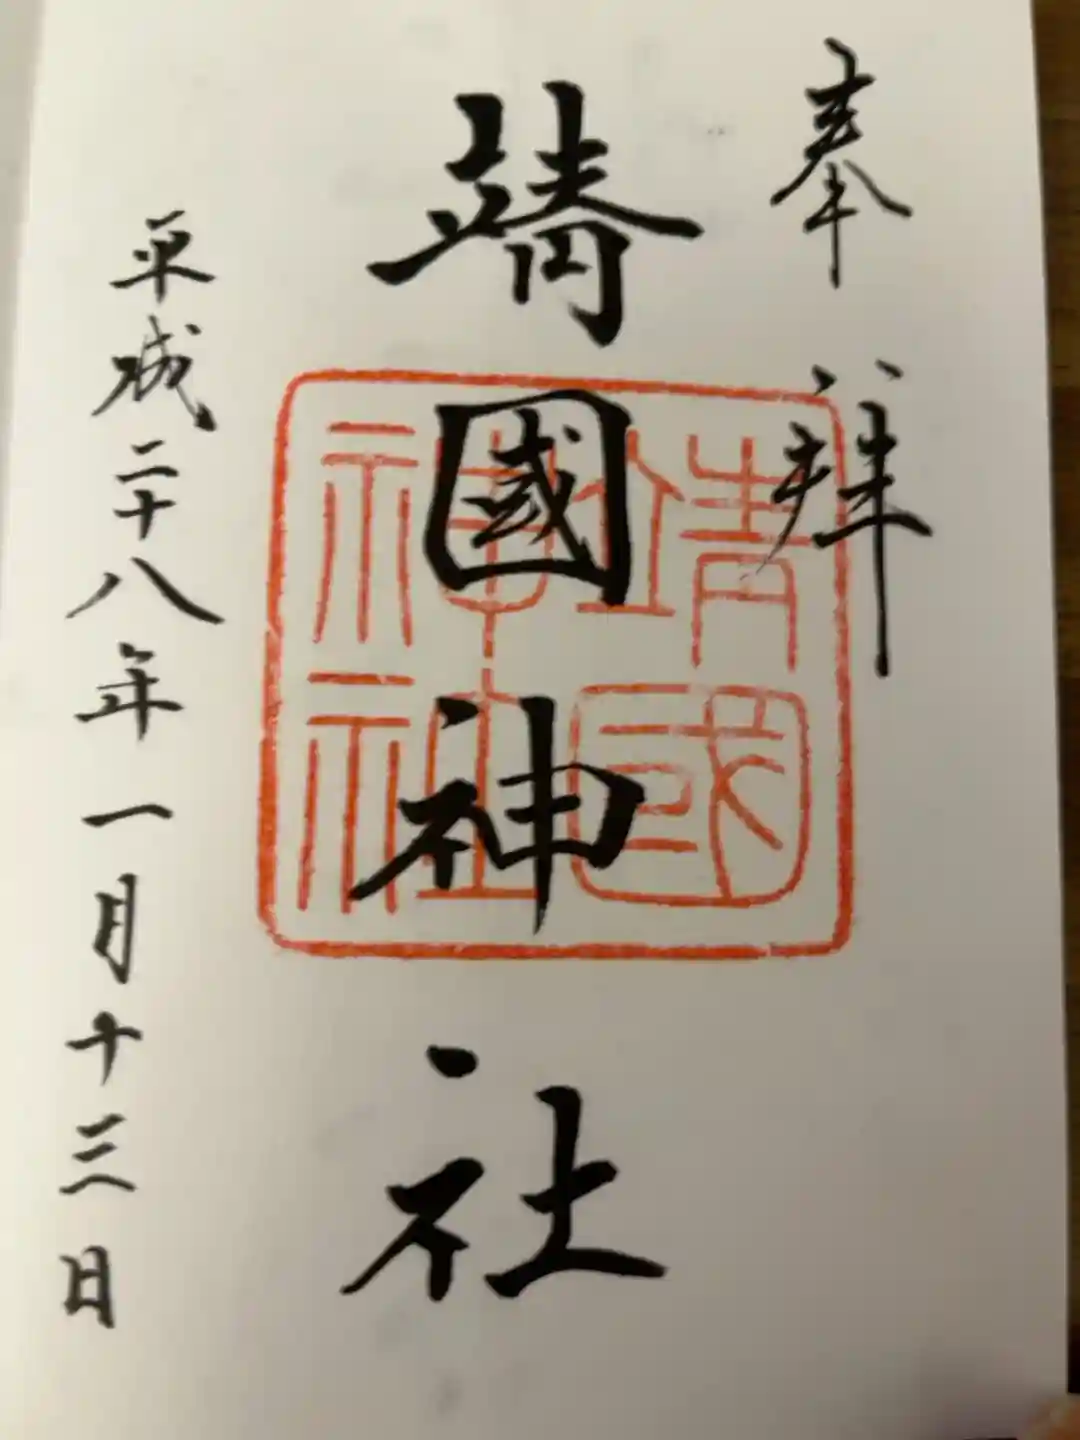 奉拝
靖國神社
靖國
神社
平成二十八年一月十三日